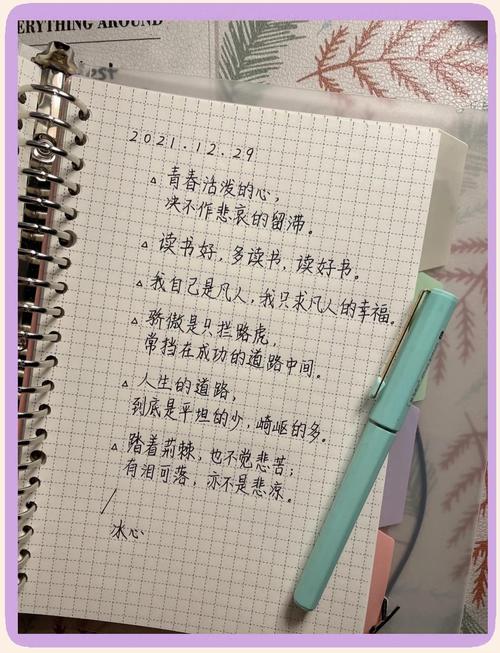 ERYTHING AROUND
2021.12.29
△ 青春活泼的心，
决不作悲哀的留滞。
△ 读书好，多读书，读好书。
△ 我自己是凡人，我只求凡人的幸福。
△ 骄傲是只拦路虎，
常挡在成功的道路中间。
△ 人生的道路，
到底是平坦的少，崎岖的多。
△ 踏着荆棘，也不觉悲苦；
有泪可落，亦不是悲凉。
/
冰心